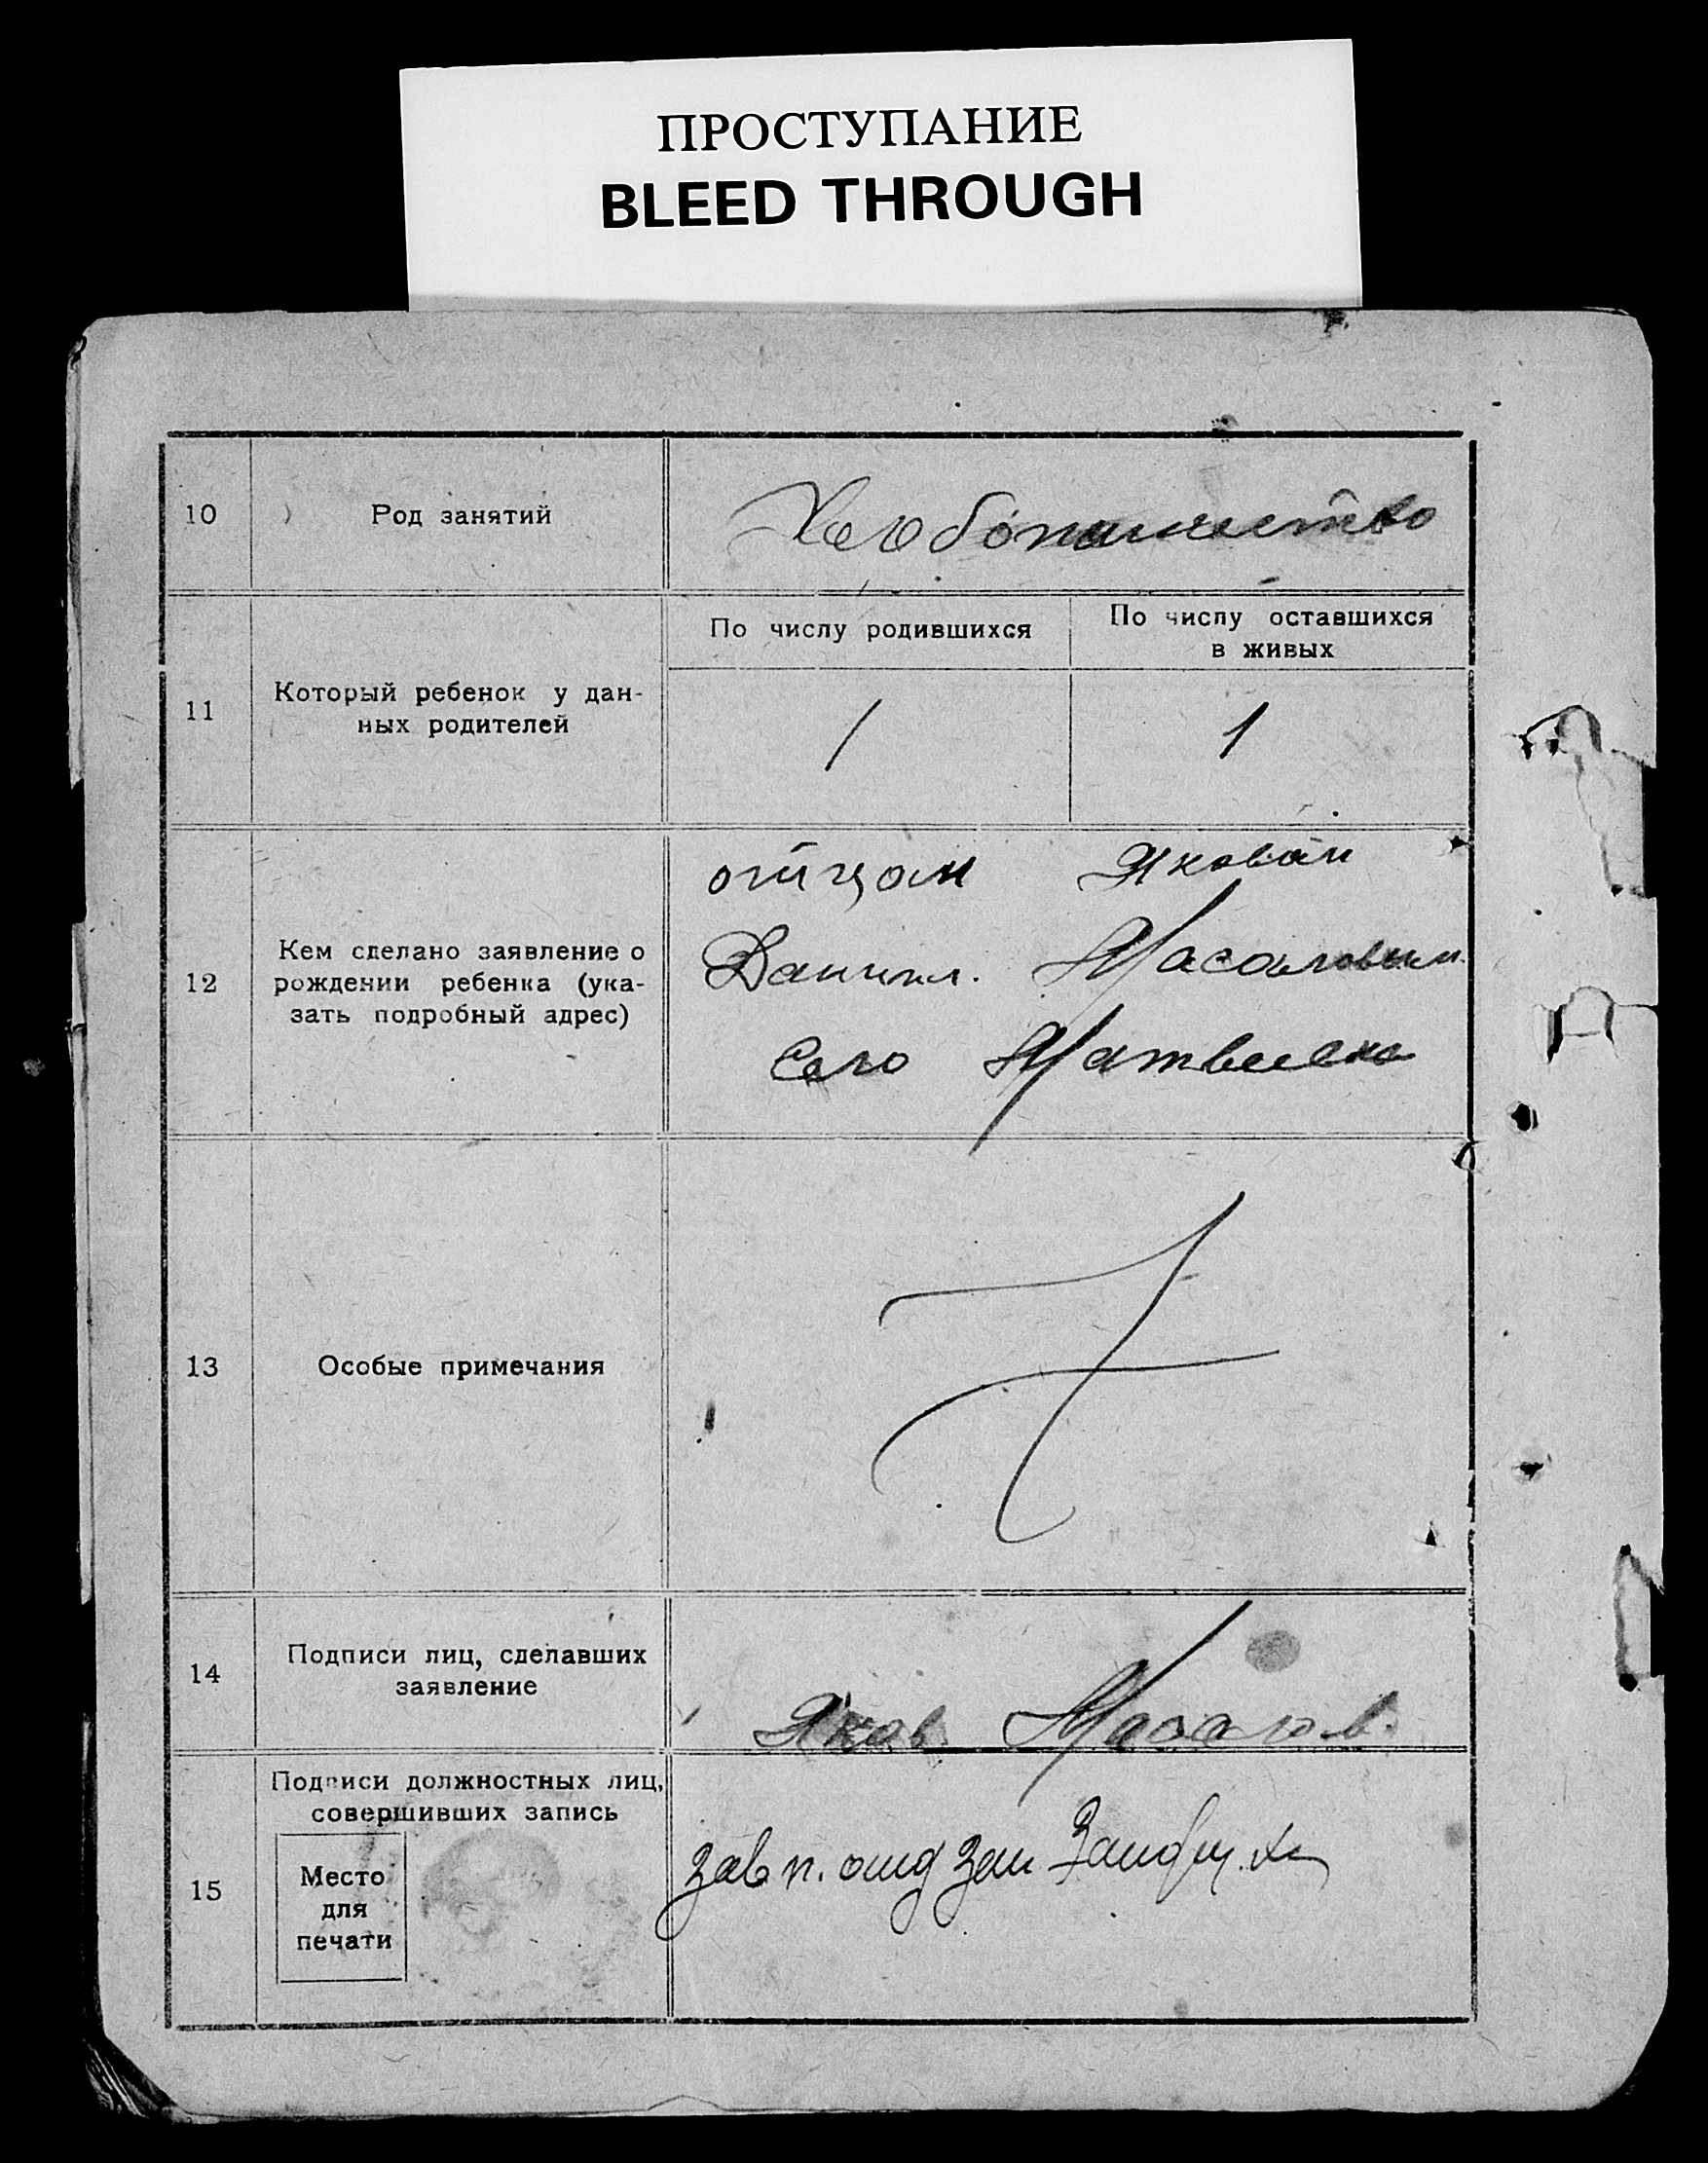 ПРОСТУПАНИЕ
BLEED THROUGH
10
Род занятий
Хлебопашество
11
Который ребенок у дан-
ных родителей
По числу родившихся
По числу оставшихся
в живых
1
1
12
Кем сделано заявление о
рождении ребенка (ука-
зать подробный адрес)
отцом Яковом
Данил. Масаловым
Село Матвеевка
13
Особые примечания
14
Подписи лиц, сделавших
заявление
Яков Масалов.
15
Подписи должностных лиц,
совершивших запись
Место
для
печати
зав п. отд